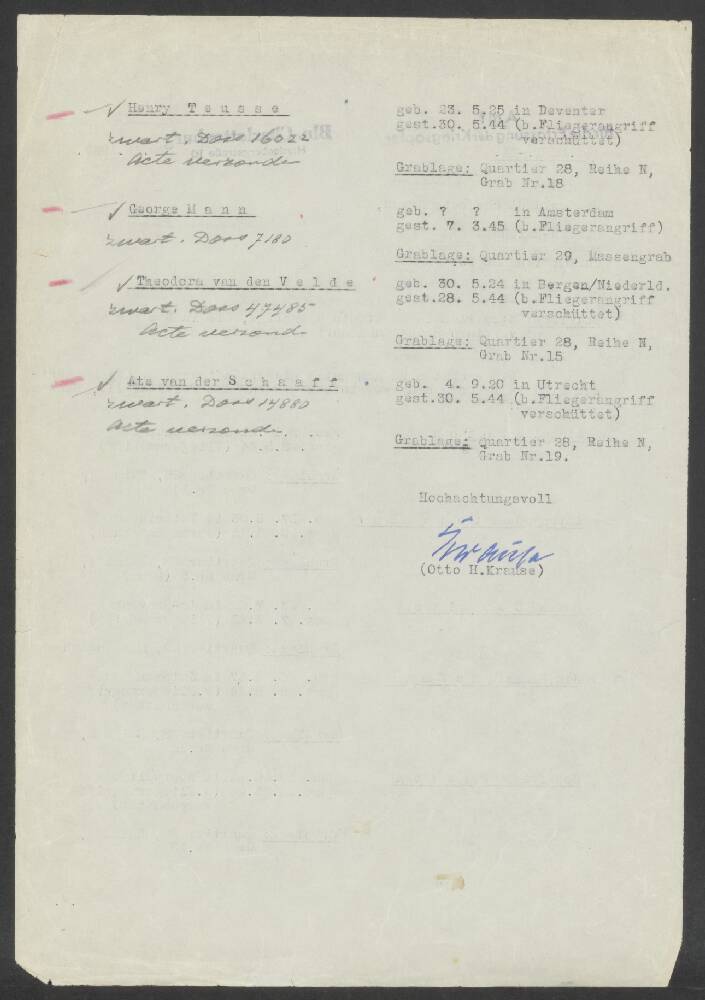 Henry Teusse
geb. 23. 5.25 in Deventer
gest.30. 5.44 (b.Fliegerangriff
verschüttet)
zwart. Doos 16022
Acte verzonden
Grablage: Quartier 28, Reihe N,
Grab Nr.18
George Mann
geb. ? ? in Amsterdam
gest. 7. 3.45 (b.Fliegerangriff)
zwart. Doos 7180
Grablage: Quartier 29, Massengrab
Theodora van den Velde
geb. 30. 5.24 in Bergen/Niederld.
gest.28. 5.44 (b.Fliegerangriff
verschüttet)
zwart. Doos 47485
Acte verzond.
Grablage: Quartier 28, Reihe N,
Grab Nr.15
Ate van der Schaaff
geb. 4. 9.20 in Utrecht
gest.30. 5.44 (b.Fliegerangriff
verschüttet)
zwart. Doos 14880
Acte verzonden.
Grablage: Quartier 28, Reihe N,
Grab Nr.19.
Hochachtungsvoll
Krause
(Otto H.Krause)